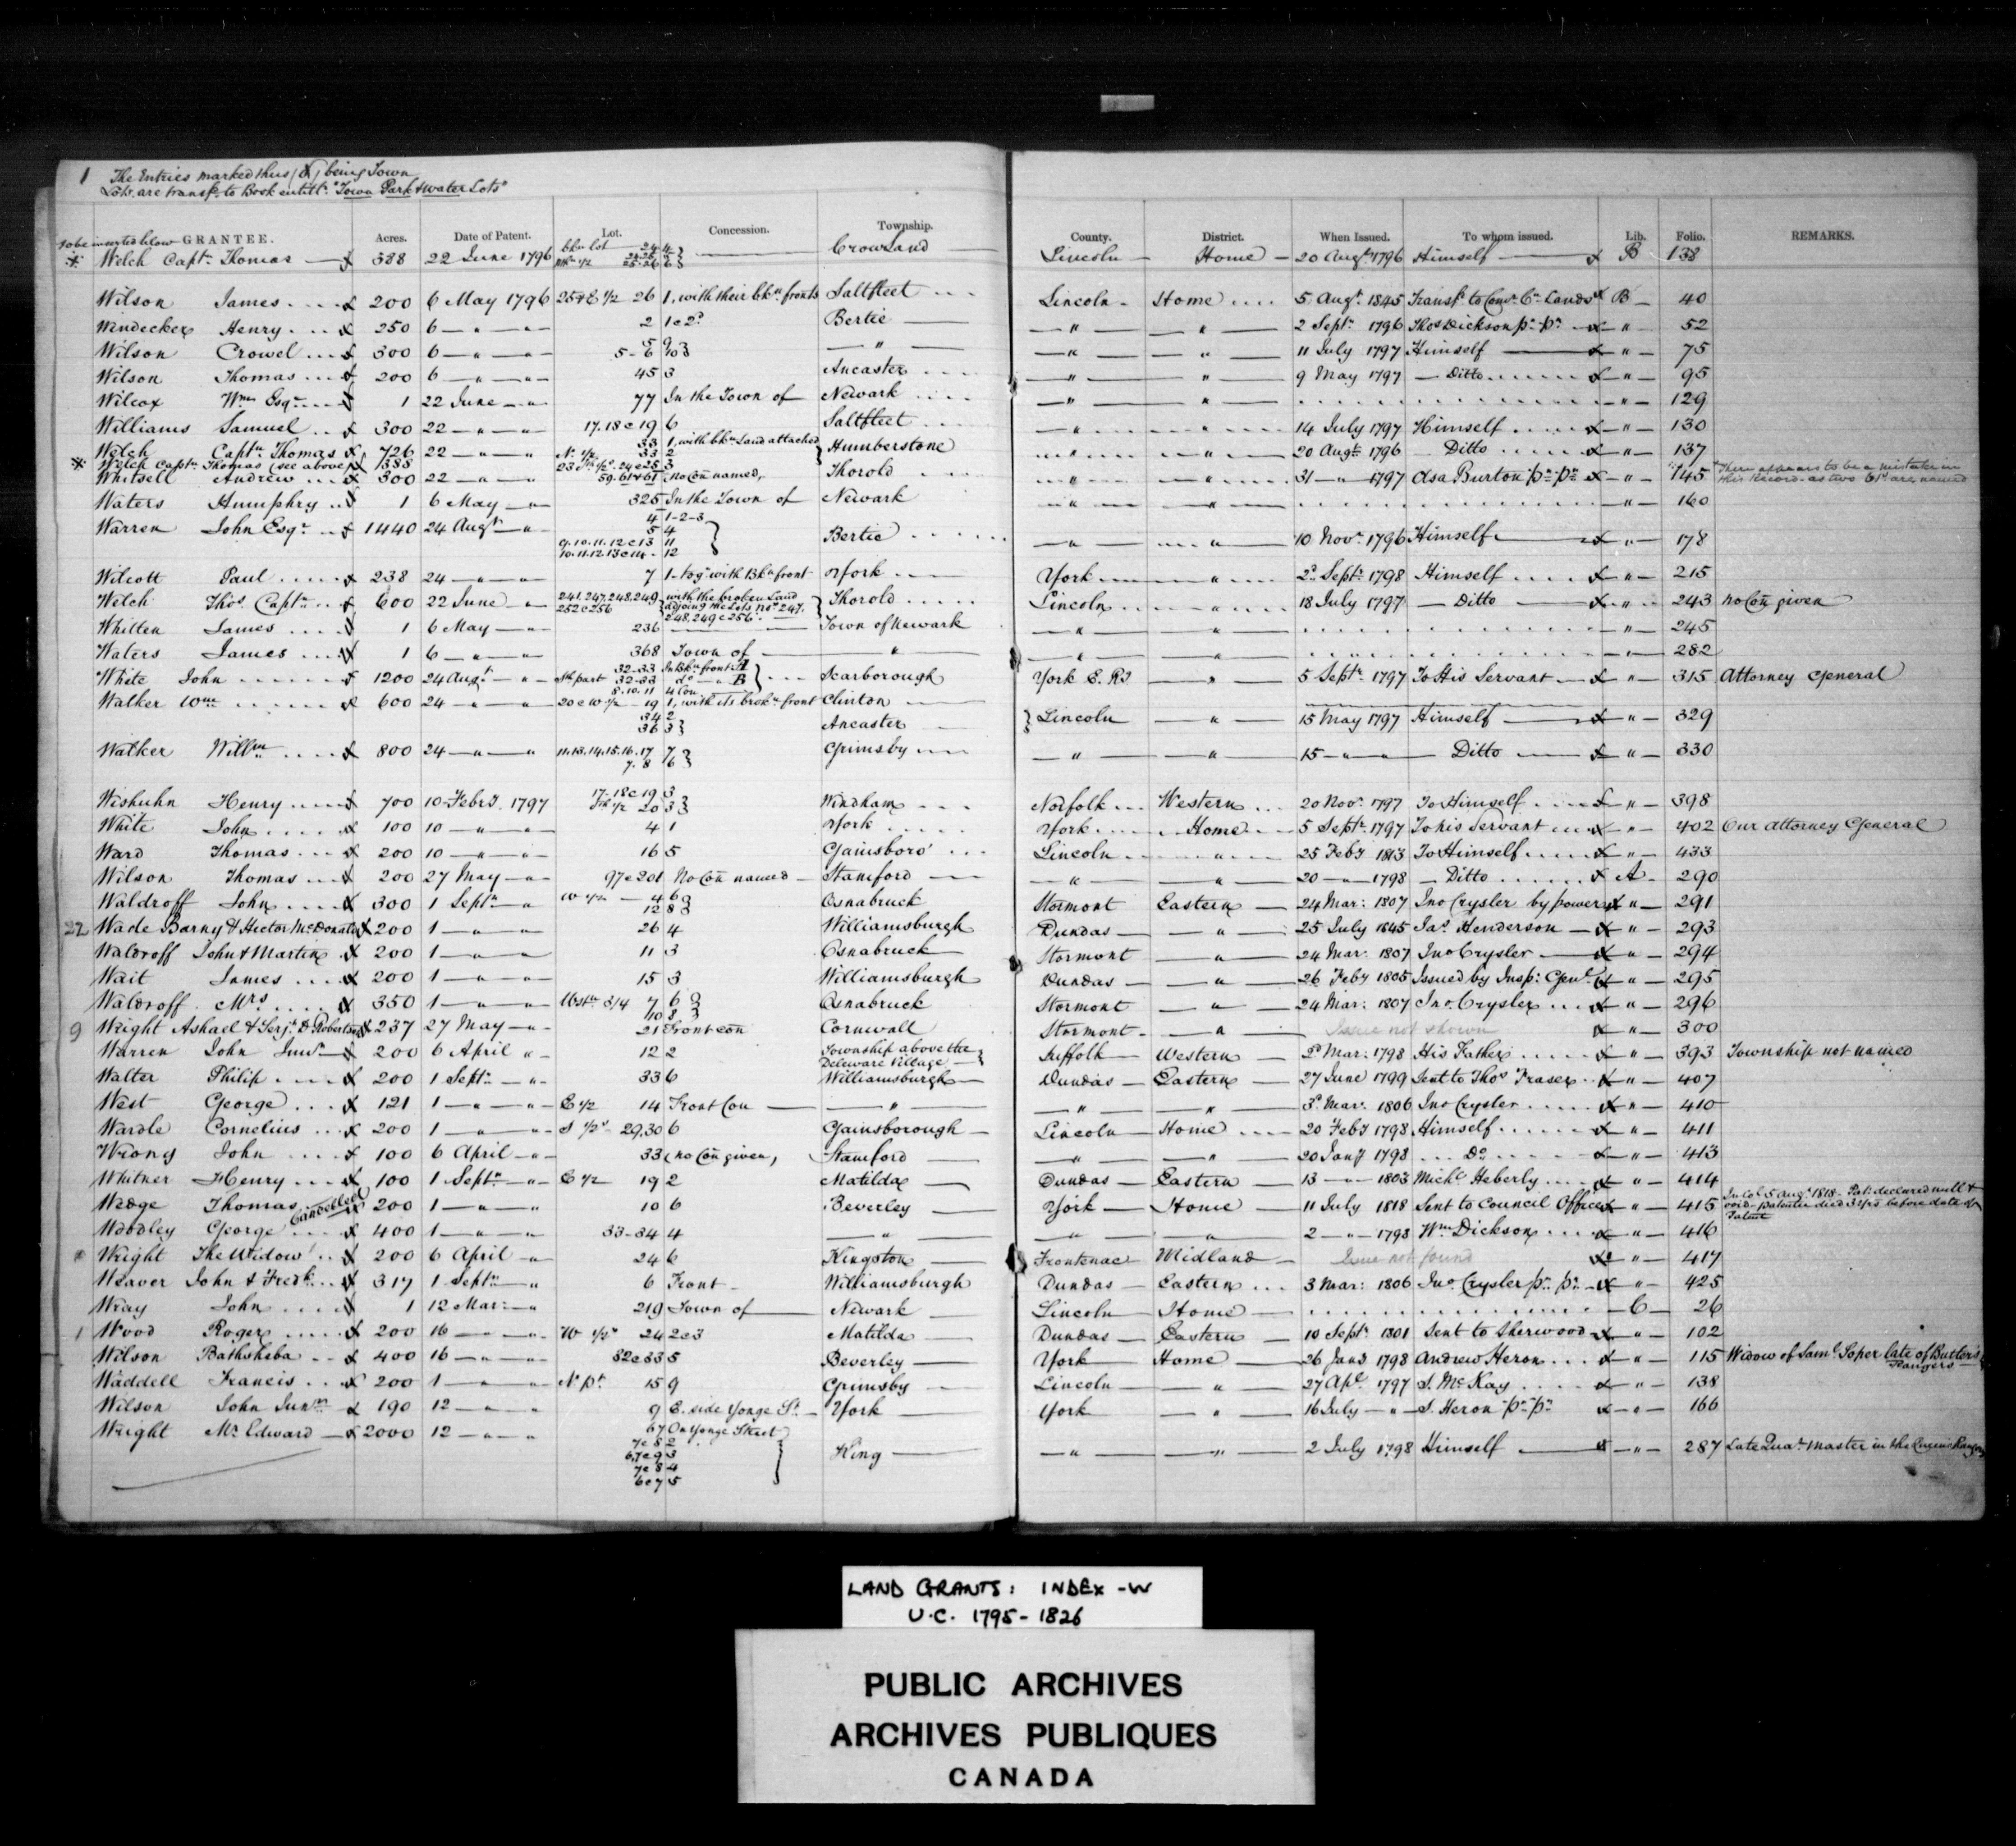 1 The Entries marked thus (x) being Town
Lots are transf.d to Book entitl.d "Town Park & Water Lots"
to be inserted below GRANTEE. Acres. Date of Patent. Lot. Concession. Township. County. District. When Issued. To whom issued. Lib. Folio. REMARKS.
Welch Capt.n Thomas 388 22 June 1796 Crowland Lincoln Home 20 Aug.t 1796 Himself B 138
Wilson James 200 6 May 1796 25 & E 1/2 26 1, with their bk.n fronts Saltfleet Lincoln Home 5 Aug.t 1845 Transf.d to Com.r C.n Lands B 40
Windecker Henry 250 6 " " 2 1 & 2.d Bertie " " 2 Sept.r 1796 Tho.s Dickson p.r p.r " 52
Wilson Crowel 300 6 " " 5 9 " " " 11 July 1797 Himself " 75
5-6 10
Wilson Thomas 200 6 " " 45 3 Ancaster " " 9 May 1797 Ditto " 95
Wilcox W.m Esq.r 1 22 June " 77 In the Town of Newark " " " 129
Williams Samuel 300 22 " " 17. 18 & 19 6 Saltfleet " " 14 July 1797 Himself " 130
Welch Capt.n Thomas 726 22 " " 33 1, with bk.n Land attached Humberstone " " 20 Aug.t 1796 Ditto " 137
N. 1/2 33 2
Welch Capt.n Thomas (see above) 388 24 & 25 3
Whitsell Andrew 300 22 " " 59. 61 & 61 (no Con named, Thorold " " 31 " 1797 Asa Burton p.r p.r " 145 There appears to be a mistake in
this Record - as two 61.s are named
Waters Humphry 1 6 May " 325 In the Town of Newark " " " 160
Warren John Esq.r 1440 24 Aug.t " 4 1-2-3 Bertie " " 10 Nov.r 1796 Himself " 178
5 4
9. 10. 11. 12 & 13 11
10. 11. 12. 13 & 14 12
Wilcott Paul 238 24 " " 7 1 - tog.r with Bk.n front York York " 2.d Sept.r 1798 Himself " 215
Welch Tho.s Capt.n 600 22 June " 241. 247. 248. 249 with the broken Land Thorold Lincoln " 18 July 1797 Ditto " 243 no Con given
252 & 256 adjoing the Lots No.s 247.
248, 249 & 256.
Whitten James 1 6 May " 236 Town of Newark " " " 245
Waters James 1 6 " " 368 Town of " " " " 282
White John 1200 24 Aug.t " 32-33 In Bk.n front A Scarborough York E. R.g " 5 Sept.r 1797 To His Servant " 315 Attorney General
N. part 32-33 d.o " B
8. 10. 11 4 Con
Walker W.m 600 24 " " 20 & W 1/2 19 1, with its brok.n front Clinton Lincoln " 15 May 1797 Himself " 329
34 2 Ancaster
36 3
Walker Will.m 800 24 " " 11. 13. 14. 15. 16. 17 7 Grimsby " " 15 " " Ditto " 330
7. 8 6
Wishuhn Henry 700 10 Feb.ry 1797 17. 18 & 19 3 Windham Norfolk Western 20 Nov.r 1797 To Himself " 398
1/2 20 3
White John 100 10 " " 4 1 York York Home 5 Sept.r 1797 To his Servant " 402 Our Attorney General
Ward Thomas 200 10 " " 16 5 Gainsboro' Lincoln " 25 Feb.y 1813 To Himself " 433
Wilson Thomas 200 27 May " 97 & 201 No Con named Stamford " " 20 " 1798 Ditto A 290
Waldroff John 300 1 Sept.r " W 1/2 4 6 Osnabruck Stormont Eastern 24 Mar: 1807 Jno Crysler by power " 291
12 8
22 Wade Barny & Hector McDonald 200 1 " " 26 4 Williamsburgh Dundas " 25 July 1845 Ja.s Henderson " 293
Waldroff John & Martin 200 1 " " 11 3 Osnabruck Stormont " 24 Mar: 1807 Jno Crysler " 294
Wait James 200 1 " " 15 3 Williamsburgh Dundas " 26 Feb.y 1805 Issued by Insp: Gen.l " 295
Waldroff Mrs 350 1 " " West.n 3/4 7 6 Osnabruck Stormont " 24 Mar: 1807 Jno. Crysler " 296
10 8
9 Wright Ashael & Serj.t D Robertson 237 27 May " 21 Front con Cornwall Stormont " Issue not shown " 300
Warren John Jun.r 200 6 April " 12 2 Township above the Suffolk Western 2.d Mar: 1798 His Father " 393 Township not named
Deleware Village
Walter Philip 200 1 Sept.r " 33 6 Williamsburgh Dundas Eastern 27 June 1799 Sent to Tho.s Fraser " 407
West George 121 1 " " E 1/2 14 Front Con " " " 3.d Mar. 1806 Jno Crysler " 410
Wardle Cornelius 200 1 " " S 1/2 29,30 6 Gainsborough Lincoln Home 20 Feb.y 1798 Himself " 411
Wrong John 100 6 April " 33 (no Con given, Stamford " " 20 Jan.y 1798 D.o " 413
Whitner Henry 100 1 Sept.r " E 1/2 19 2 Matilda Dundas Eastern 13 " 1803 Mich.l Heberly " 414
Wedge Thomas Cancelled 200 1 " " 10 6 Beverley York Home 11 July 1818 Sent to Council Office " 415 In Col. 5 Aug.t 1818 - Pat: declared null &
void - patentee died before date of
Patent
Woodley George 400 1 " " 33-34 4 " " " 2 " 1798 W.m Dickson " 416
Wright The Widow 200 6 April " 24 6 Kingston Frontenac Midland Issue not found " 417
Weaver John & Fred.k 317 1 Sept.r " 6 Front Williamsburgh Dundas Eastern 3 Mar: 1806 Jno. Crysler p.r p.r " 425
Wray John 1 12 Mar: " 219 Town of Newark Lincoln Home C 26
1 Wood Roger 200 16 " " W 1/2 24 2 & 3 Matilda Dundas Eastern 10 Sept.r 1801 Sent to Sherwood " 102
Wilson Bathsheba 400 16 " " 32 & 33 5 Beverley York Home 26 Jan.y 1798 Andrew Heron " 115 Widow of Sam.l Soper late of Butler's
Rangers
Waddell Francis 200 1 " " N p.t 15 9 Grimsby Lincoln " 27 Ap.l 1797 S. McKay " 138
Wilson John Jun.r 190 12 " " 9 E. side Yonge S.t York York " 16 July " S. Heron p.r p.r " 166
Wright M.r Edward 2000 12 " " 67 On Yonge Street King " " 2 July 1798 Himself " 287 Late Qua.r Master in the Queens Rangers
7 & 8 2
6, 7 & 9 3
7 & 8 4
6 & 7 5
LAND GRANTS: INDEX - W
U.C. 1795 - 1826
PUBLIC ARCHIVES
ARCHIVES PUBLIQUES
CANADA